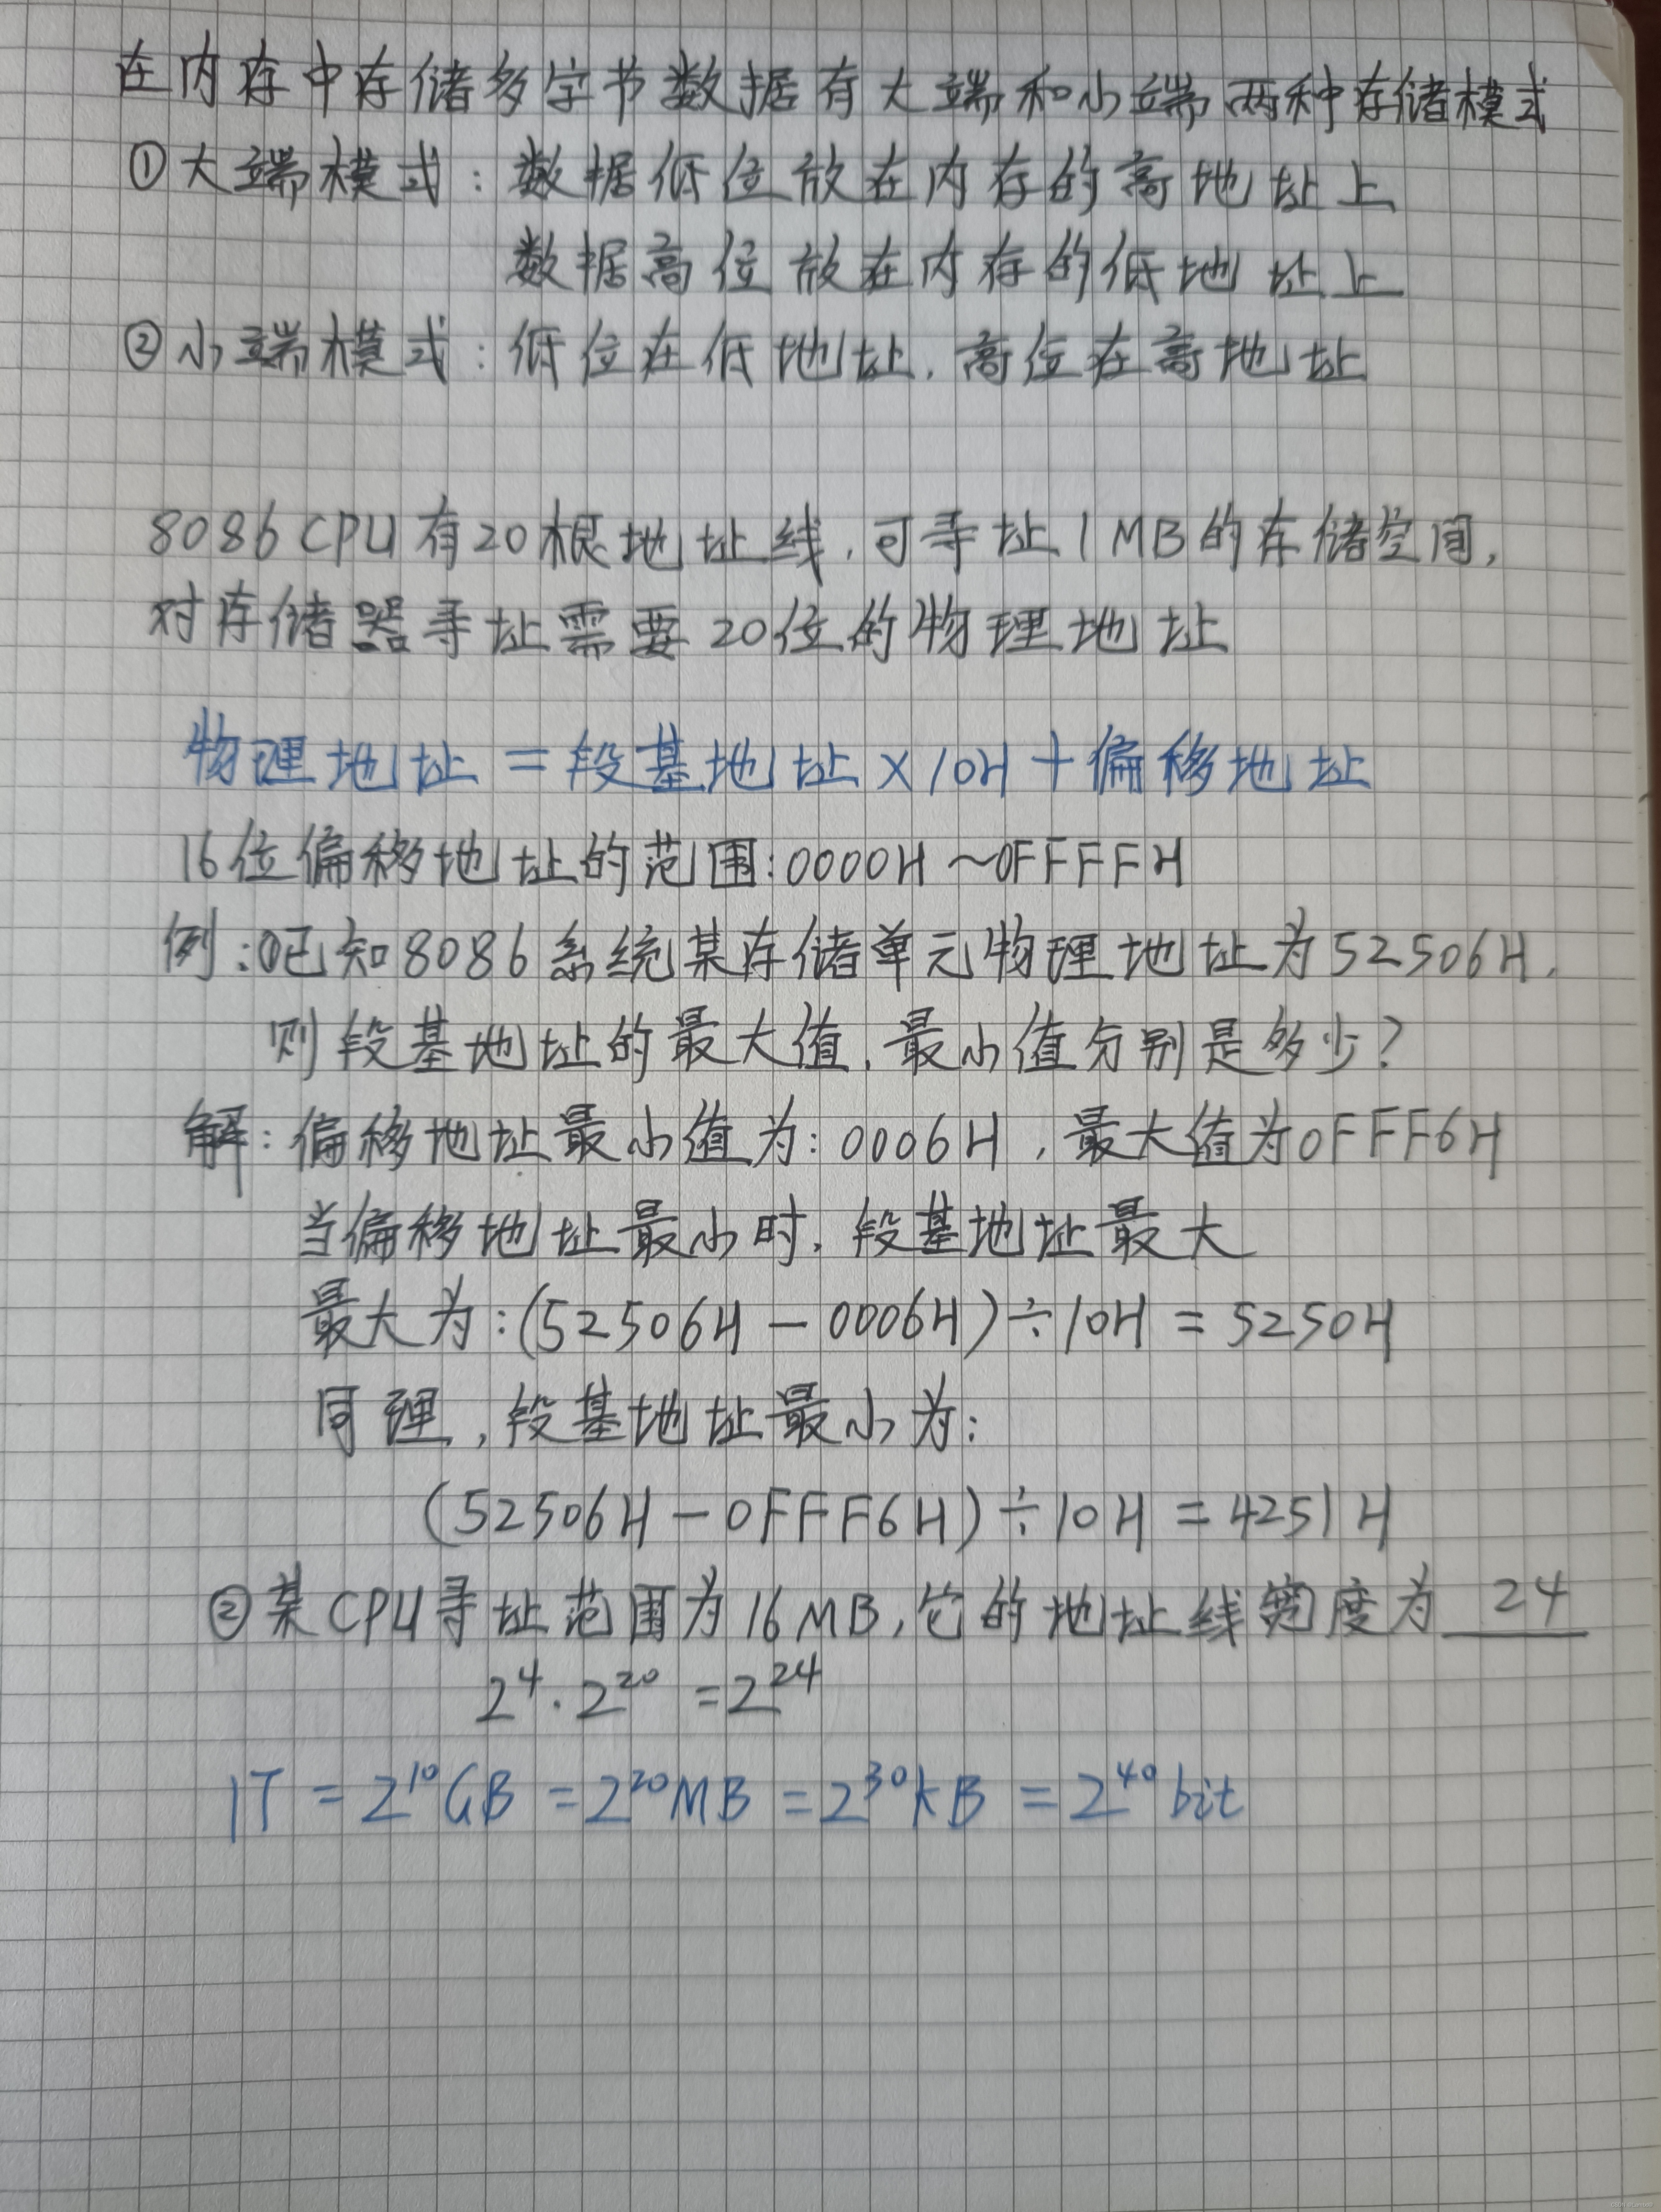 在内存中存储多字节数据有大端和小端两种存储模式
①大端模式:数据低位放在内存的高地址上
数据高位放在内存的低地址上
②小端模式:低位在低地址,高位在高地址
8086CPU有20根地址线,可寻址1MB的存储空间,
对存储器寻址需要20位的物理地址
物理地址=段基地址×10H+偏移地址
16位偏移地址的范围:0000H~0FFFFH
例:①已知8086系统某存储单元物理地址为52506H,
则段基地址的最大值,最小值分别是多少?
解:偏移地址最小值为:0006H,最大值为0FFF6H
当偏移地址最小时,段基地址最大
最大为:(52506H-0006H)÷10H=5250H
同理,段基地址最小为:
(52506H-0FFF6H)÷10H=4251H
②某CPU寻址范围为16MB,它的地址线宽度为 24
2⁴·2²⁰=2²⁴
1T=2¹⁰GB=2²⁰MB=2³⁰kB=2⁴⁰bit